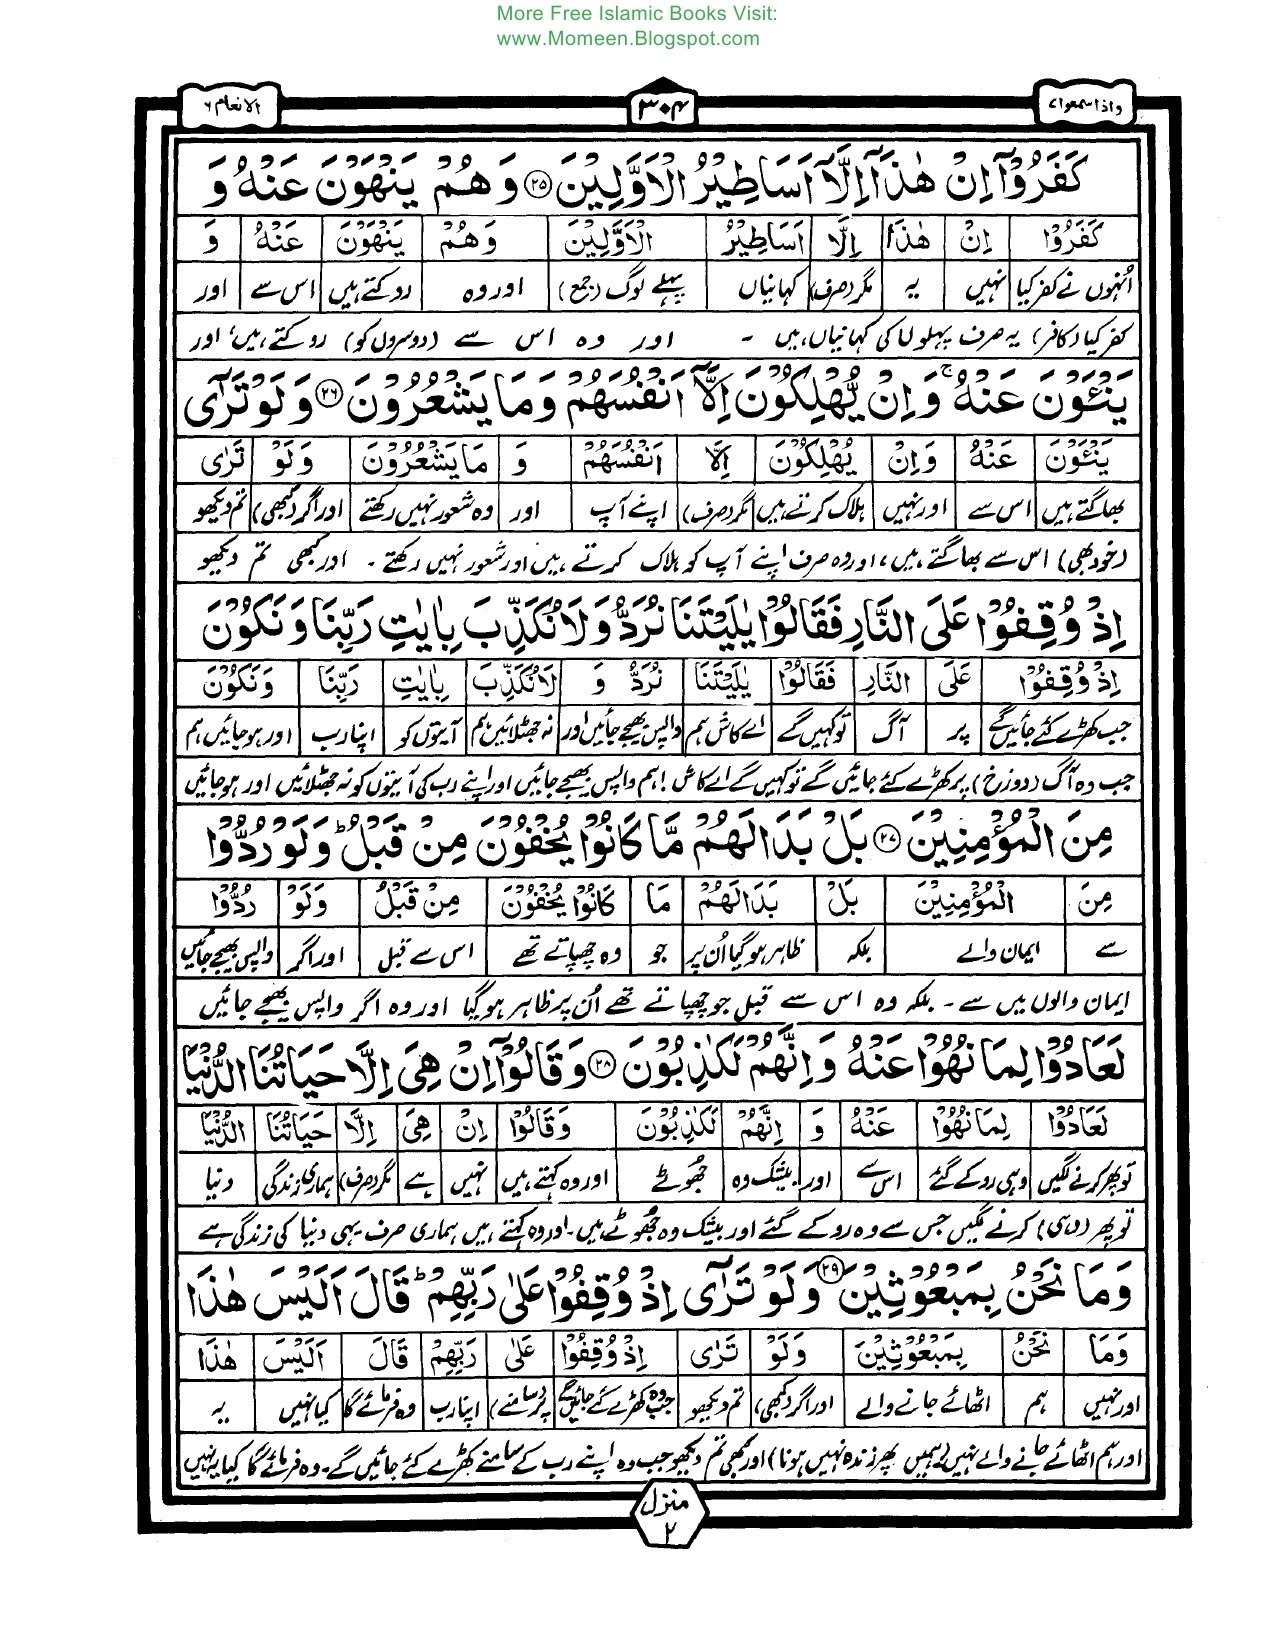 More Free Islamic Books Visit:
www.Momeen.Blogspot.com
واذا سمعوا ۷ ۳۰۴ الانعام ۶
كَفَرُوْۤا اِنْ هٰذَاۤ اِلَّاۤ اَسَاطِيْرُ الْاَوَّلِيْنَ ۲۵ وَ هُمْ يَنْهَوْنَ عَنْهُ وَ
كَفَرُوْا اِنْ هٰذَا اِلَّا اَسَاطِيْرُ الْاَوَّلِيْنَ وَ هُمْ يَنْهَوْنَ عَنْهُ وَ
اُنہوں نے کفر کیا نہیں یہ مگر (صرف) کہانیاں پہلے لوگ (جمع) اور وہ روکتے ہیں اس سے اور
کفر کیا (کافر) یہ صرف پہلوں کی کہانیاں ہیں ۔ اور وہ اس سے (دوسروں کو) روکتے ہیں، اور
يَنْـَٔوْنَ عَنْهُ ۚ وَ اِنْ يُّهْلِكُوْنَ اِلَّاۤ اَنْفُسَهُمْ وَ مَا يَشْعُرُوْنَ ۲۶ وَ لَوْ تَرٰۤى
يَنْـَٔوْنَ عَنْهُ وَ اِنْ يُهْلِكُوْنَ اِلَّا اَنْفُسَهُمْ وَ مَا يَشْعُرُوْنَ وَ لَوْ تَرٰى
بھاگتے ہیں اس سے اور نہیں ہلاک کرتے ہیں مگر (صرف) اپنے آپ اور وہ شعور نہیں رکھتے اور اگر (کبھی) تم دیکھو
(خود بھی) اس سے بھاگتے ہیں، اور وہ صرف اپنے آپ کو ہلاک کرتے ہیں اور شعور نہیں رکھتے ۔ اور کبھی تم دیکھو
اِذْ وُقِفُوْا عَلَى النَّارِ فَقَالُوْا يٰلَيْتَنَا نُرَدُّ وَ لَا نُكَذِّبَ بِاٰيٰتِ رَبِّنَا وَ نَكُوْنَ
اِذْ وُقِفُوْا عَلَى النَّارِ فَقَالُوْا يٰلَيْتَنَا نُرَدُّ وَ لَا نُكَذِّبَ بِاٰيٰتِ رَبِّنَا وَ نَكُوْنَ
جب کھڑے کئے جائیں گے پر آگ تو کہیں گے اے کاش ہم واپس بھیجے جائیں اور نہ جھٹلائیں ہم آیتوں کو اپنا رب اور ہو جائیں ہم
جب وہ آگ (دوزخ) پر کھڑے کئے جائیں گے تو کہیں گے اے کاش! ہم واپس بھیجے جائیں اور اپنے رب کی آیتوں کو نہ جھٹلائیں اور ہو جائیں
مِنَ الْمُؤْمِنِيْنَ ۲۷ بَلْ بَدَا لَهُمْ مَّا كَانُوْا يُخْفُوْنَ مِنْ قَبْلُ ؕ وَ لَوْ رُدُّوْا
مِنَ الْمُؤْمِنِيْنَ بَلْ بَدَا لَهُمْ مَا كَانُوْا يُخْفُوْنَ مِنْ قَبْلُ وَ لَوْ رُدُّوْا
سے ایمان والے بلکہ ظاہر ہو گیا اُن پر جو وہ چھپاتے تھے اس سے قبل اور اگر واپس بھیجے جائیں
ایمان والوں میں سے ۔ بلکہ وہ اس سے قبل جو چھپاتے تھے اُن پر ظاہر ہو گیا اور وہ اگر واپس بھیجے جائیں
لَعَادُوْا لِمَا نُهُوْا عَنْهُ وَ اِنَّهُمْ لَكٰذِبُوْنَ ۲۸ وَ قَالُوْۤا اِنْ هِىَ اِلَّا حَيَاتُنَا الدُّنْيَا
لَعَادُوْا لِمَا نُهُوْا عَنْهُ وَ اِنَّهُمْ لَكٰذِبُوْنَ وَ قَالُوْا اِنْ هِىَ اِلَّا حَيَاتُنَا الدُّنْيَا
تو پھر کرنے لگیں وہی روکے گئے اس سے اور بیشک وہ جھوٹے اور وہ کہتے ہیں نہیں ہے مگر (صرف) ہماری زندگی دنیا
تو پھر (وہی) کرنے لگیں جس سے وہ روکے گئے اور بیشک وہ جھوٹے ہیں ۔ اور وہ کہتے ہیں ہماری صرف یہی دنیا کی زندگی ہے
وَ مَا نَحْنُ بِمَبْعُوْثِيْنَ ۲۹ وَ لَوْ تَرٰۤى اِذْ وُقِفُوْا عَلٰى رَبِّهِمْ ؕ قَالَ اَلَيْسَ هٰذَا
وَ مَا نَحْنُ بِمَبْعُوْثِيْنَ وَ لَوْ تَرٰى اِذْ وُقِفُوْا عَلٰى رَبِّهِمْ قَالَ اَلَيْسَ هٰذَا
اور نہیں ہم اٹھائے جانے والے اور اگر (کبھی) تم دیکھو جب وہ کھڑے کئے جائیں گے پر (سامنے) اپنا رب وہ فرمائے گا کیا نہیں یہ
اور ہم اٹھائے جانے والے نہیں (ہمیں پھر زندہ نہیں ہونا) اور کبھی تم دیکھو جب وہ اپنے رب کے سامنے کھڑے کئے جائیں گے۔ وہ فرمائے گا کیا یہ نہیں
منزل ۲